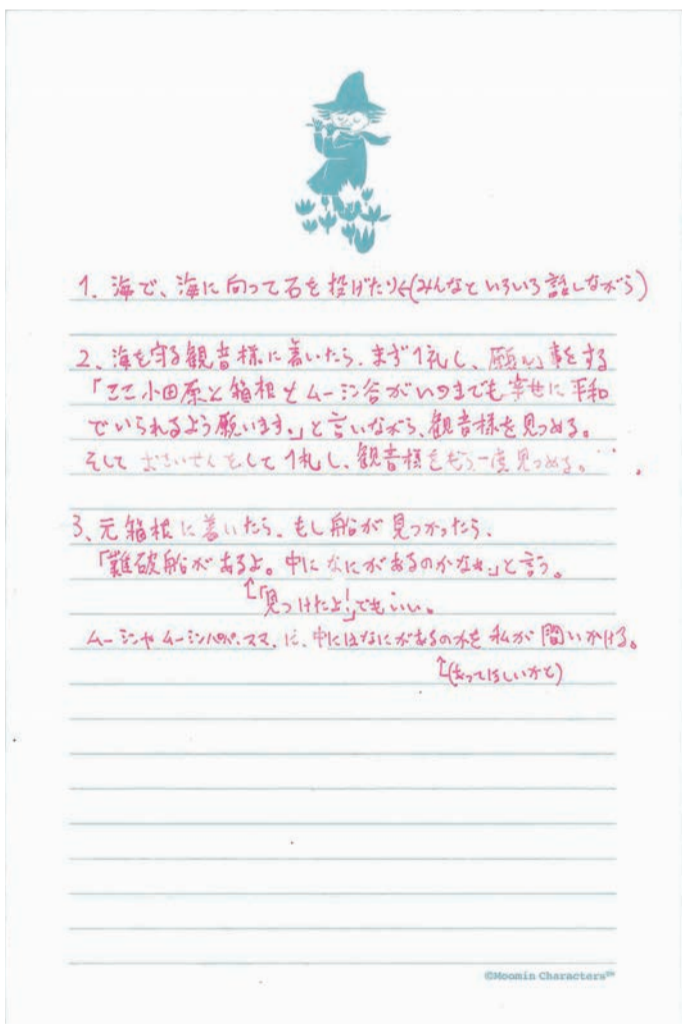 1. 海で、海に向って石を投げたり←(みんなといろいろ話しながら)
2. 海を守る観音様に着いたら、まず1礼し、願い事をする
「ここ小田原と箱根とムーミン谷がいつまでも幸せに平和
でいられるよう願います。」と言いながら、観音様を見つめる。
そして おさいせんをして1礼し、観音様をもう一度見つめる。
3、元箱根に着いたら、もし船が見つかったら、
「難破船があるよ。中になにがあるのかなぁ。」と言う。
↑「見つけたよ!」でもいい。
ムーミンやムーミンパパ、ママ、に、中にはなにがあるのかを私が問いかける。
↑(あってほしいかと)
©Moomin Characters™